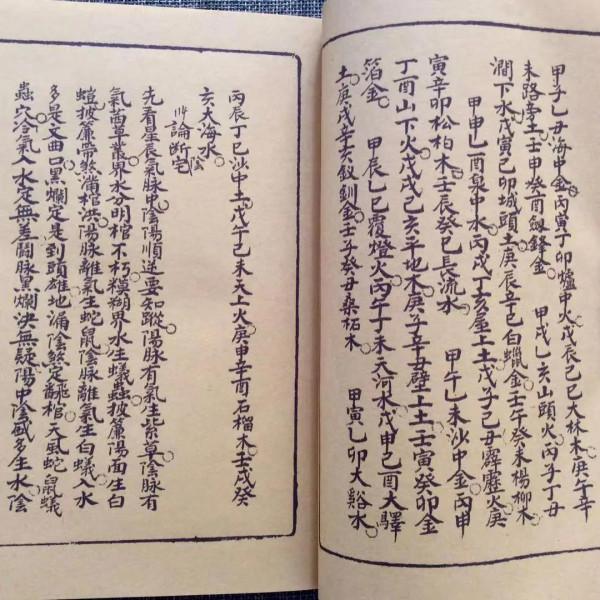 甲子乙丑海中金丙寅丁卯爐中火戊辰己巳大林木庚午辛
未路旁土壬申癸酉劍鋒金　甲戌乙亥山頭火丙子丁丑
澗下水戊寅己卯城頭土庚辰辛巳白蠟金壬午癸未楊柳木
甲申乙酉泉中水丙戌丁亥屋上土戊子己丑霹靂火庚
寅辛卯松柏木壬辰癸巳長流水　甲午乙未沙中金丙申
丁酉山下火戊戌己亥平地木庚子辛丑壁上土壬寅癸卯金
箔金　甲辰乙巳覆燈火丙午丁未天河水戊申己酉大驛
土庚戌辛亥釵釧金壬子癸丑桑柘木　甲寅乙卯大谿水
丙辰丁巳沙中土戊午己未天上火庚申辛酉石榴木壬戌癸
亥大海水
論斷陰宅
先看星辰氣脉中陰陽順逆要知蹤陽脉有氣生紫草陰脉有
氣茵草叢界水分明棺不朽模糊界水生蟻蟲披簾陽面生白
螘披簾帶煞滿棺洪陽脉離氣生蛇鼠陰脉離氣生白蟻入水
多是文曲口黑爛定是到頭雄地漏陰煞定翻棺天風蛇鼠蟻
蟲穴冷氣入水定無差鬪脉黑爛決無疑陽中陰盛多生水陰